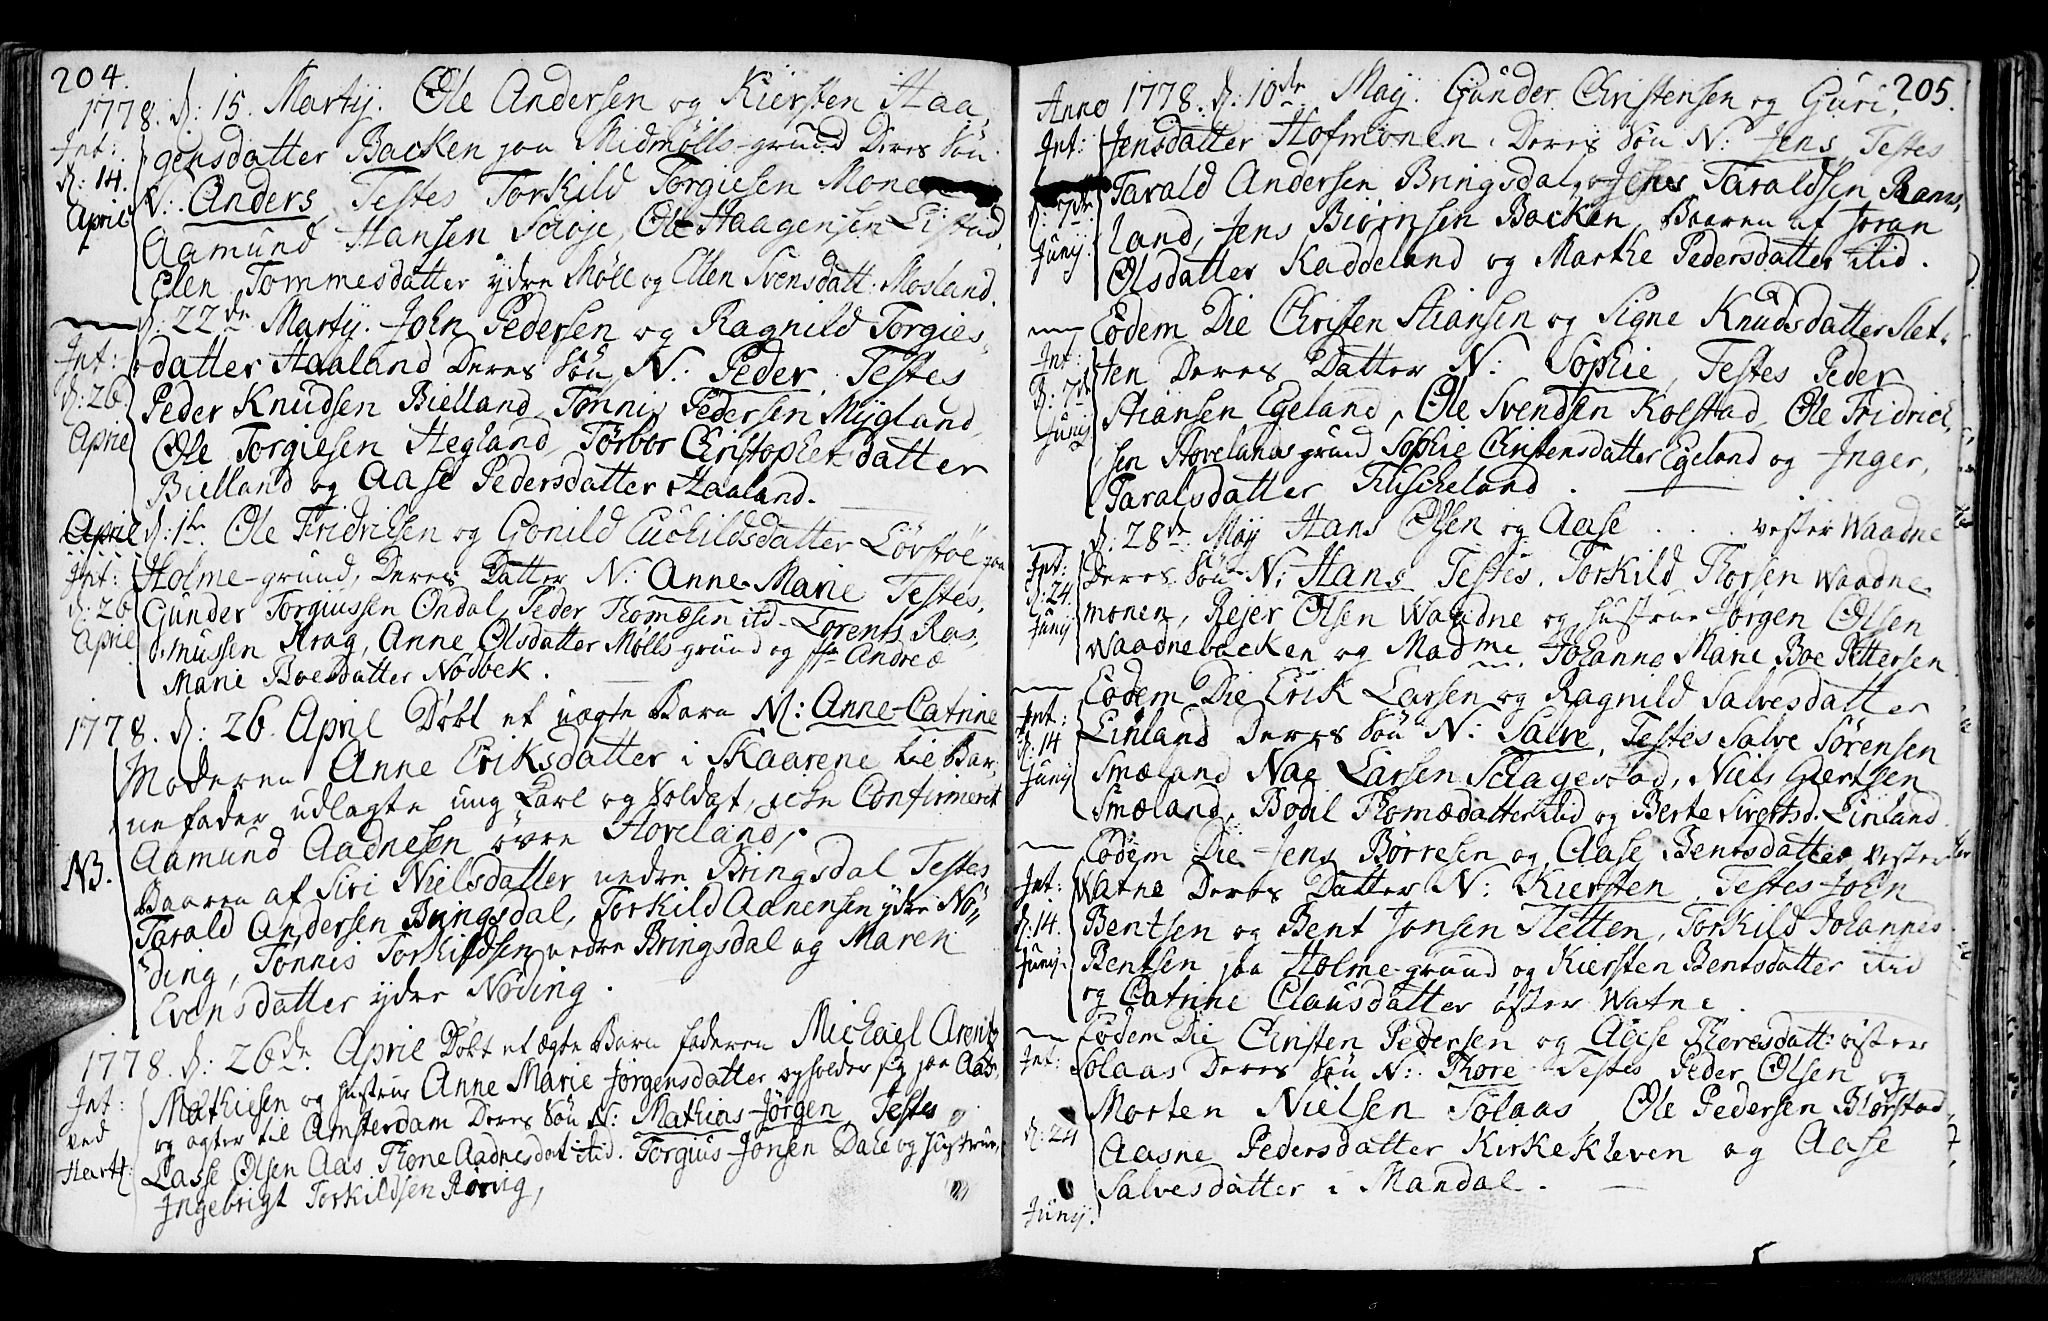 204.
1778. d: 15. Martij. Ole Andersen og Kiersten Haa,
Int: gensdatter Backen paa Midmølls-grund Deres Søn
d: 14. N: Anders, Testes Torkild Torgiesen Monen
April Aamund Hansen Schøje, Ole Haagensen Eistad,
Elen Tommesdatter ydre Møll og Ellen Svensdatt: Mosland.
d: 22de Martij. John Pedersen og Ragnild Torgies,
Int: datter Haaland Deres Søn N: Peder. Testes
d: 26 Peder Knudsen Bielland, Tønnis Pedersen Mygland,
April Ole Torgiesen Hegland, Torbor Christophersdatter
Bielland og Aase Pedersdatter Haaland.
April d: 1te Ole Fridrilsen og Gonild datter Løvboe paa
Int: Holme-grund, Deres Datter N: Anne-Marie Testes,
d: 26 Gunder Torgiussen Ondal, Peder Thomæsen itd- Lorents Ras,
April mussen Krag, Anne Olsdatter Mølls grund og Andreæ
Marie Boesdatter Nodbek.
1778. d: 26 April Døbt et uægte Barn N: Anne-Catrine
Moderen Anne Eriksdatter i Skaarene til Bar,
nefader udlagte ung Karl og Soldat, Confirmerit
Aamund Aadnesen øvre Hoveland,
NB. Baaren af Siri Nielsdatter nedre Bringsdal Testes
Tarald Andersen Bringsdal, Torkild Aanensen ydre Nö,,
ding, Tønnis Torkildsen nedre Bringsdal og Maren
Evensdatter ydre Nöding.
1778. d: 26de April Døbt et ægte Barn faderen Michael Arents
Int: Mathiesen og Hustrue Anne Marie Jørgensdatter opholder sig paa Aas,
ved og agter til Amsterdam Deres Søn N: Mathias-Jørgen Testes
Hartf: Lasse Olsen Aas Thone Aadnesdat: itid. Torgius Jonsen Dale og Hustrue,
Ingebrigt Torkildsen Rørvig,
205.
Anno 1778. d: 10de Maij. Gunder Christensen og Guri,
Int: Jensdatter Hofmonen. Deres Søn N: Jens Testes
Tarald Andersen Bringsdal, og Jens Taraldsen Rams,
d: 7de land, Jens Biörnsen Backen, Baaren af Joran
Junij. Olsdatter Kaddeland og Marthe Pedersdatter itid.
Eodem Die Christen Stiansen og Signe Knudsdatter Slet,
Int: ten Deres Datter N: Sophie, Testes Peder
d: 7de Stiansen Egeland, Ole Svendsen Kolstad, Ole Fridrich,
Junij sen Hovelands grund Sophie Christensdatter Egeland og Inger,
Taralsdatter
d: 28de Maij Hans Olsen og Aase . . . vester Waadne
Int: Deres Søn N: Hans Testes. Torkild Thorsen Waadne
d: 24. monen, Rejer Olsen Waadne og Hustrue Jørgen Olsen
Junij Waadnebacken og Madme. Johanne Marie Boe Pettersen
Eodem Die Erik Larsen og Ragnild Salvesdatter
Int: Einland Deres Søn N: Salve, Testes Salve Sørensen
d: 14 Smæland Nae Larsen Schagestad, Niels Giertsen
Junij Smæland, Bodil Thomædatter itid og Berte Sivertsd. Einland.
Eodem Die Jens Børresen og Aase Bentsdatter vester
Int: Watne Deres Datter N: Kiersten Testes John
d: 14. Bentsen og Bent Jonsen Sletten, Torkild Johannes
Junij. Bentsen paa Holme-grund og Kiersten Bentsdatter itid
og Catrine Clausdatter øster Watne.
Eodem Die Christen Pedersen og Aase Thoresdatt: øster
Int: Solaas Deres Søn N: Thore Testes Peder Olsen og
Morten Nielsen Solaas, Ole Pedersen Blørstad,
d: 24 Aasne Pedersdatter Kirkekleven og Aase
Salvesdatter i Mandal.
Junij.